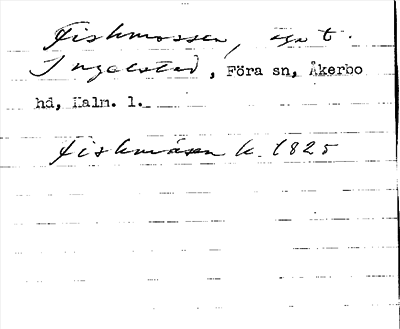 Fiskmossen, äga t.
Ingelstad, Föra sn, Åkerbo
hd, Kalm. l.
Fiskmåsen k. 1825